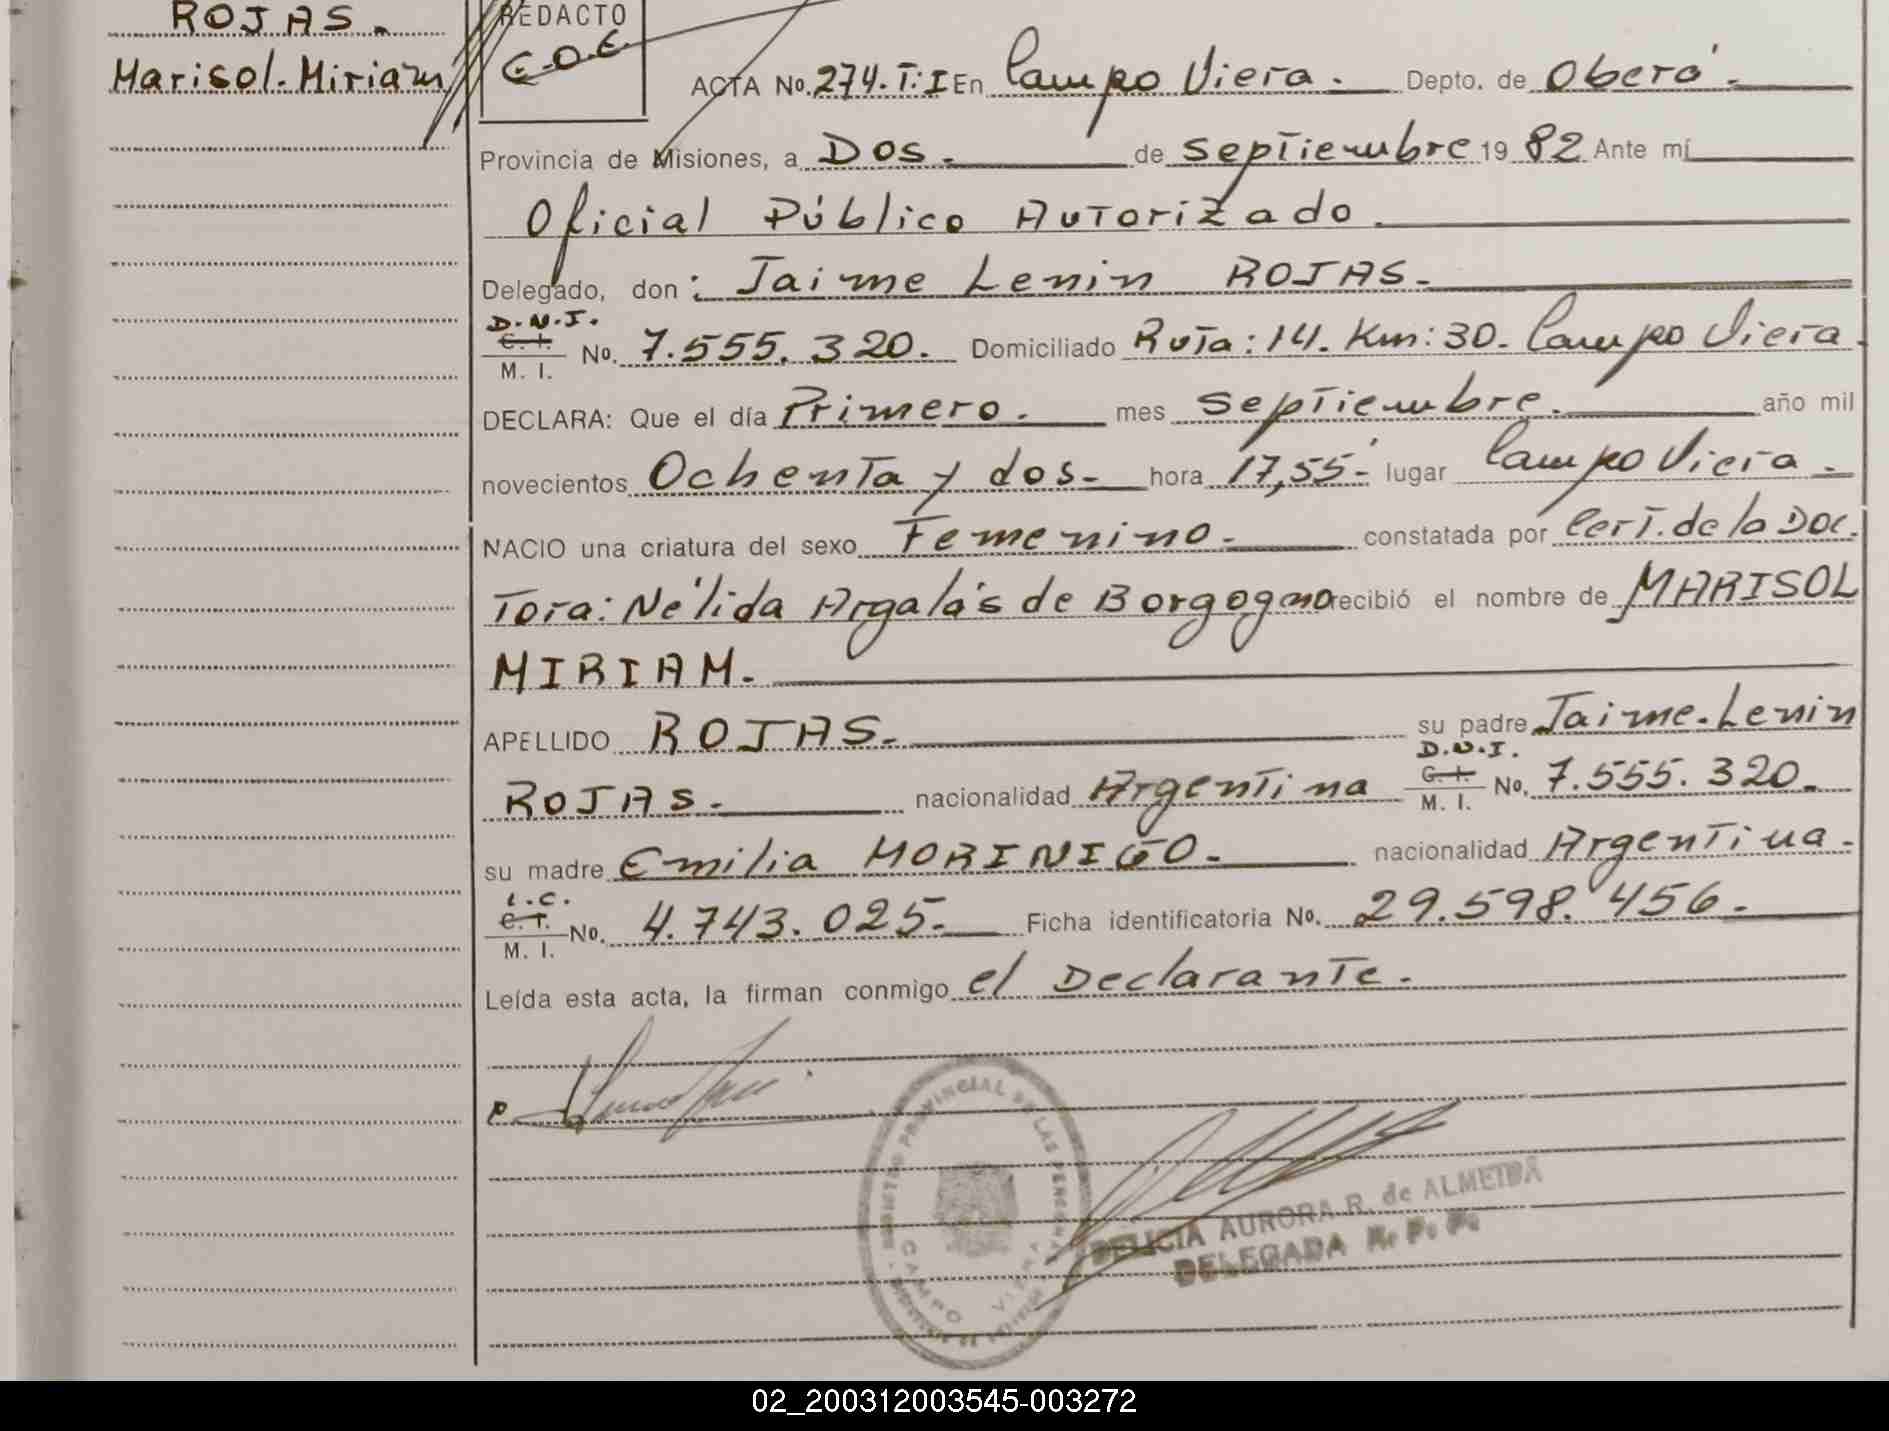 ROJAS.
Marisol. Miriam
REDACTO
C.O.E.
ACTA No. 274. T: I En Campo Viera. Depto. de Oberá.
Provincia de Misiones, a Dos. de septiembre 19 82 Ante mí
Oficial Público Autorizado
Delegado, don: Jaime Lenin ROJAS.
D.N.I.
C. I.
M. I.
No. 7.555.320. Domiciliado Ruta: 14. Km: 30. Campo Viera.
DECLARA: Que el día Primero. mes septiembre. año mil
novecientos Ochenta y dos. hora 17,55. lugar Campo Viera.
NACIO una criatura del sexo Femenino. constatada por Cert. de la Doc.
Tora: Nélida Argalás de Borgogno recibió el nombre de MARISOL
MIRIAM.
APELLIDO ROJAS. su padre Jaime. Lenin
ROJAS. nacionalidad Argentina D.N.I. C. I. M. I. No. 7.555.320.
su madre Emilia MORINIGO. nacionalidad Argentina.
L.C.
C. I.
M. I.
No. 4.743.025. Ficha identificatoria No. 29.598.456.
Leída esta acta, la firman conmigo el Declarante.
PROVINCIAL DE LAS PERSONAS
CAMPO VIERA
DELICIA AURORA R. de ALMEIDA
DELEGADA R. P. P.
02_200312003545-003272